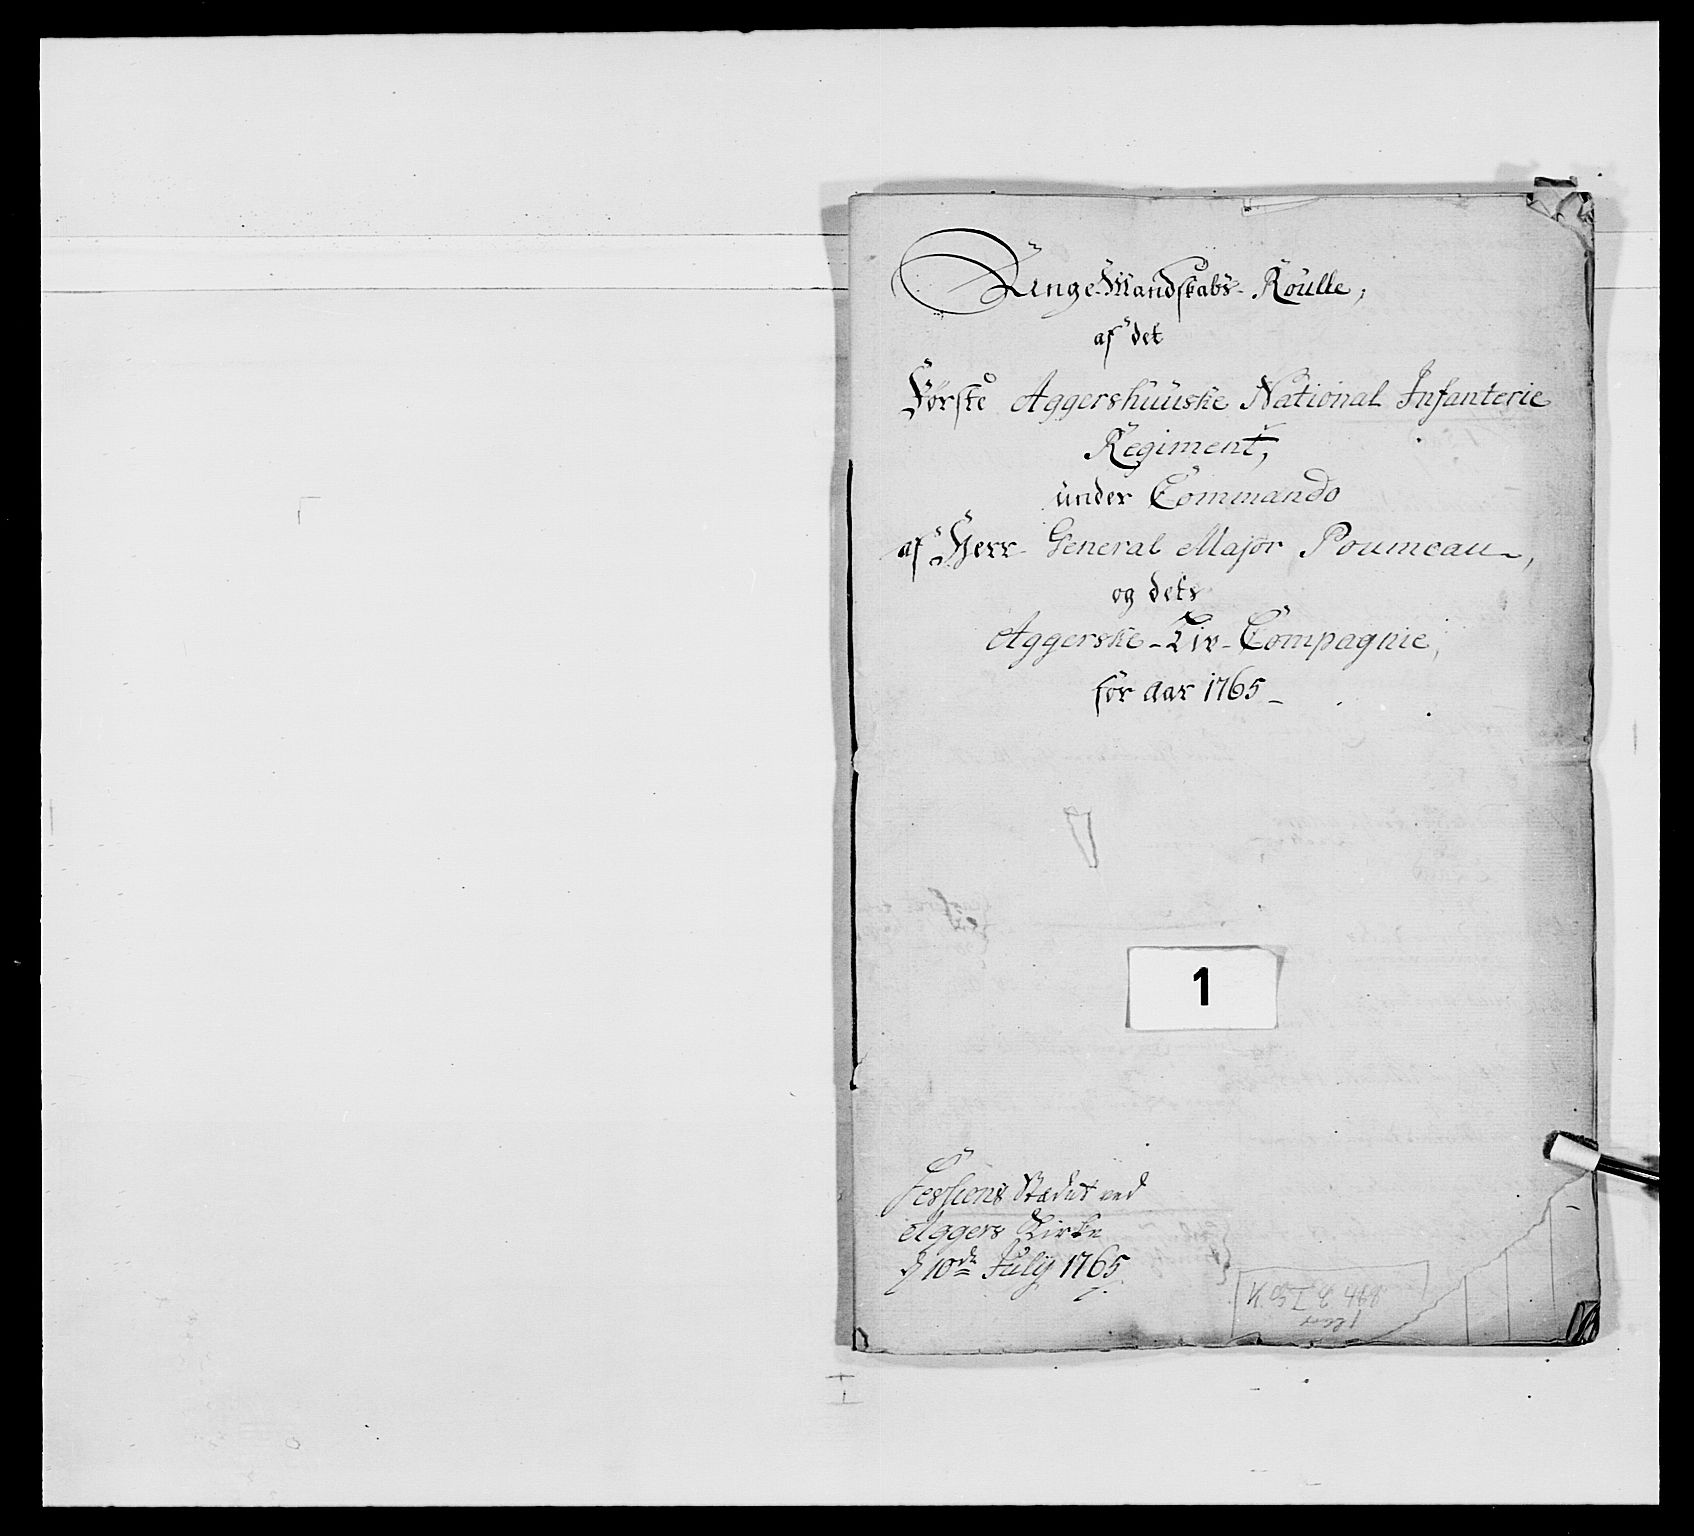 Unge-Mandskabs-Roulle,
af det
Første Aggershuuske National Infanterie
Regiment,
under Commando
af Herr General Major Poumeau,
og dets
Aggerske-Liv-Compagnie,
for Aar 1765
1
Sessions Stædet ved
Aggers Kirke
d 10de July 1765